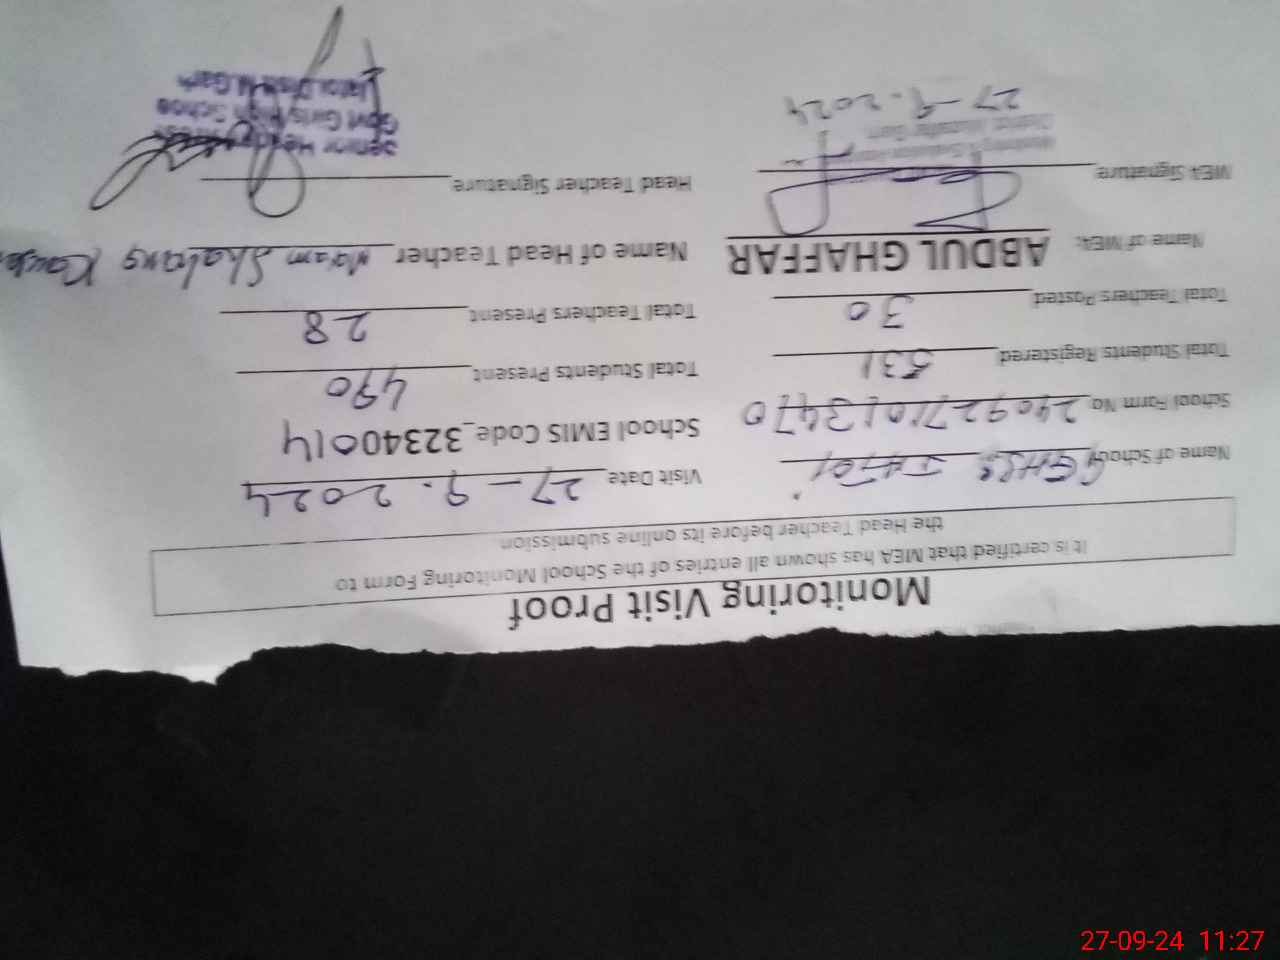 Monitoring Visit Proof
It is certified that MEA has shown all entries of the School Monitoring Form to
the Head Teacher before its online submission
Name of School GGHSS Jatoi Visit Date 27-9.2024
School Form No 2409271013470 School EMIS Code_32340014
Total Students Registered 531 Total Students Present 490
Total Teachers Posted 30 Total Teachers Present 28
Name of MEA: ABDUL GHAFFAR Name of Head Teacher Maam
MEA Signature Head Teacher Signature
27-9.2024
Senior
Govt Girls High Schoo
Jatoi Distt M.Garh
27-09-24 11:27